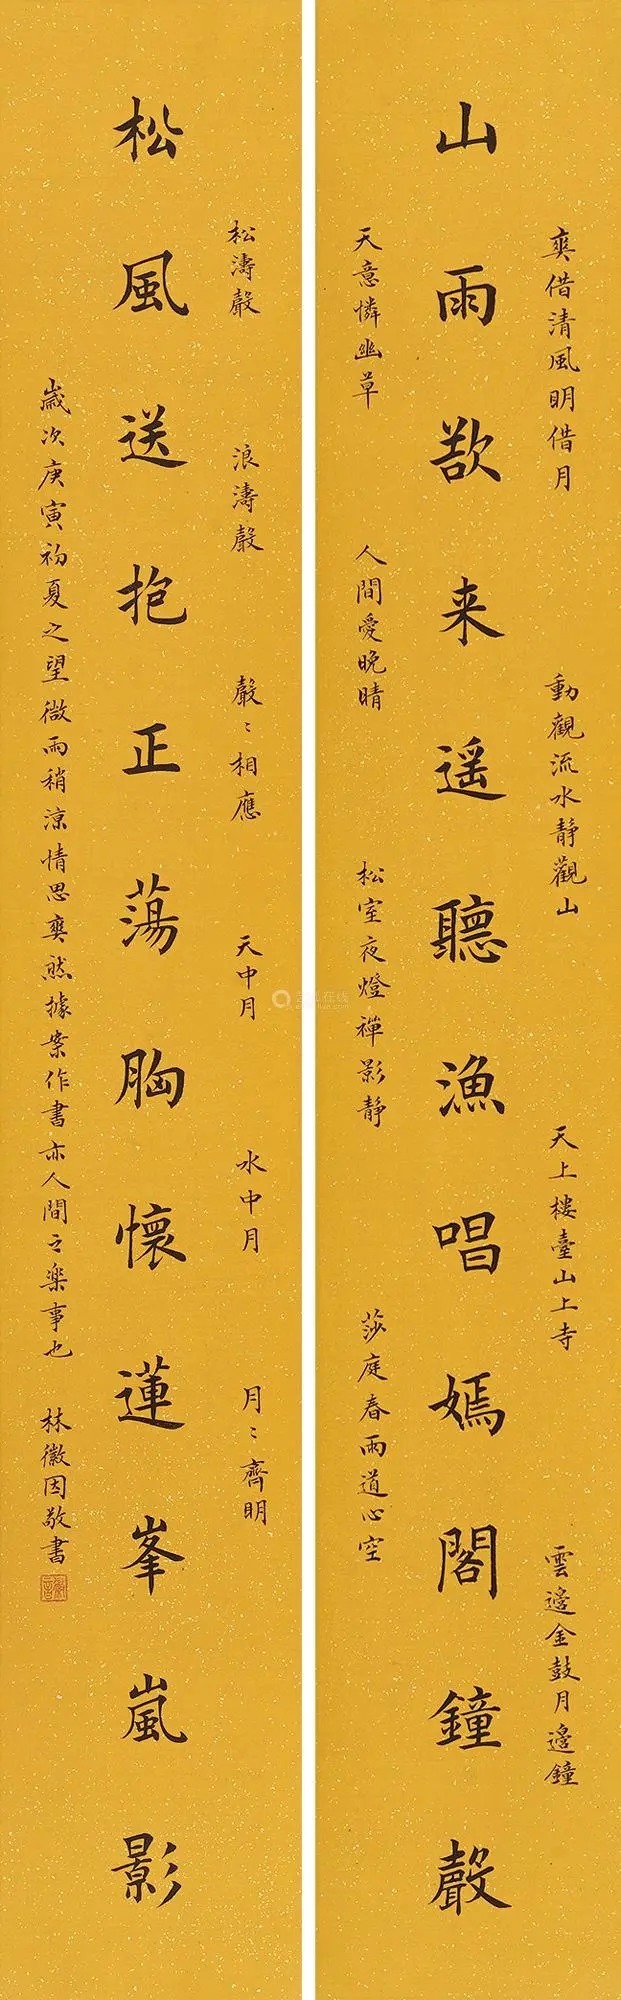 爽借清風明借月
動觀流水靜觀山
天上樓臺山上寺
雲邊金鼓月邊鐘
山雨欲来遥聽漁唱嫣閣鐘聲
天意憐幽草
人間愛晚晴
松室夜燈禪影静
莎庭春雨道心空
松濤聲
浪濤聲
聲〻相應
天中月
水中月
月〻齊明
松風送抱正蕩胸懷蓮峯嵐影
歲次庚寅初夏之望微雨稍涼情思爽然據案作書亦人間之樂事也
林徽因敬書